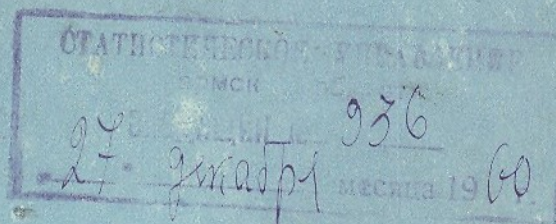 СТАТИСТИЧЕСКОЕ УПРАВЛЕНИЕ
ТОМСК
936
27 декабря месяца 1960